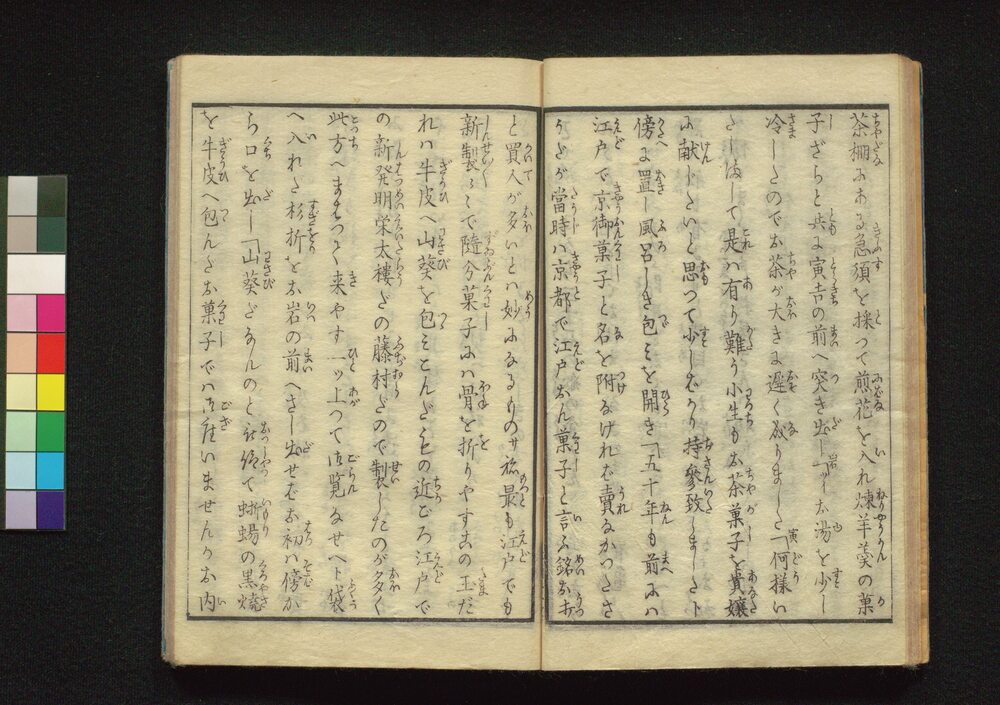 茶棚にある急須を採つて煎花を入れ煉羊羹の菓
子ざらと共に寅吉の前へ突き出し「少しお湯を少し
冷したのでお茶が大きに遅く成りました「何様い
たしまして是は有り難う小生もお茶菓子を貴嬢
に献じたいと思つて少しばかり持參致しましたト
傍に置し風呂しき包みを開き「五十年も前には
江戸で京御菓子と名を附なければ賣なかつたさ
うだが當時は京都で江戸おん菓子と言ふ銘がなけ
と買人が多いとは妙になるものサ最も江戸でも
新製ゝで隨分菓子には骨を折りやすこの玉だ
れは牛皮へ山葵を包みこんだもの近ごろ江戸で
の新発明栄太樓だの藤村だので製したのが多く
此方へまゐつて来やす一ツ上つて御覧なせへト袋
へ入れた杉折をお岩の前へさし出せばお初は傍か
ら口を出し「山葵だなんのと被仰て蜥蜴の黒燒
を牛皮へ包んだお菓子では御座いませんかお内